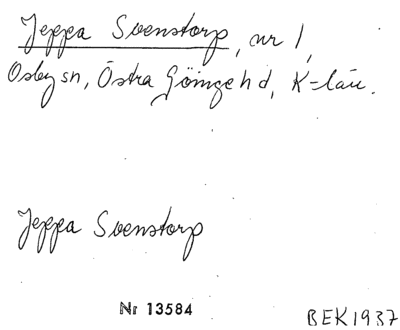 Jeppa Svenstorp, nr 1,
Osby sn, Östra Göinge hd, K-län.
Jeppa Svenstorp
Nr 13584
BEK1937